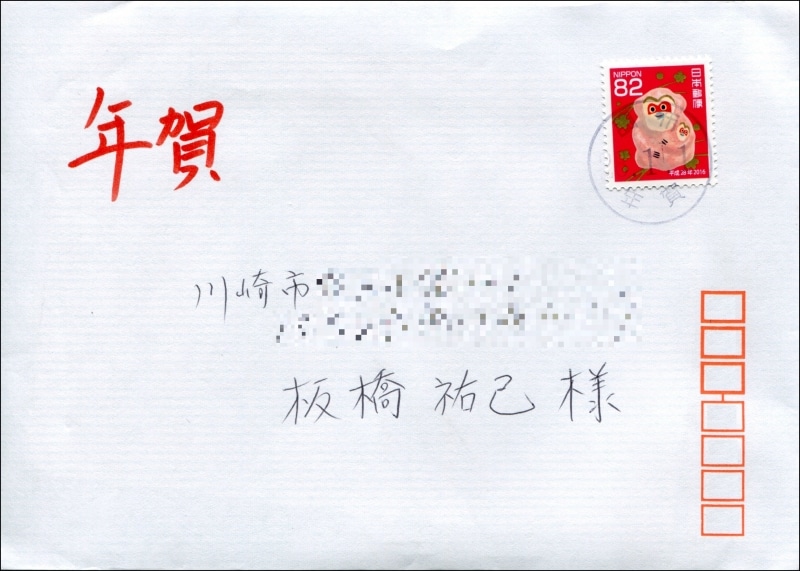 年賀
NIPPON
82
日本郵便
平成28年2016
年賀
川崎市
板橋 祐己 様